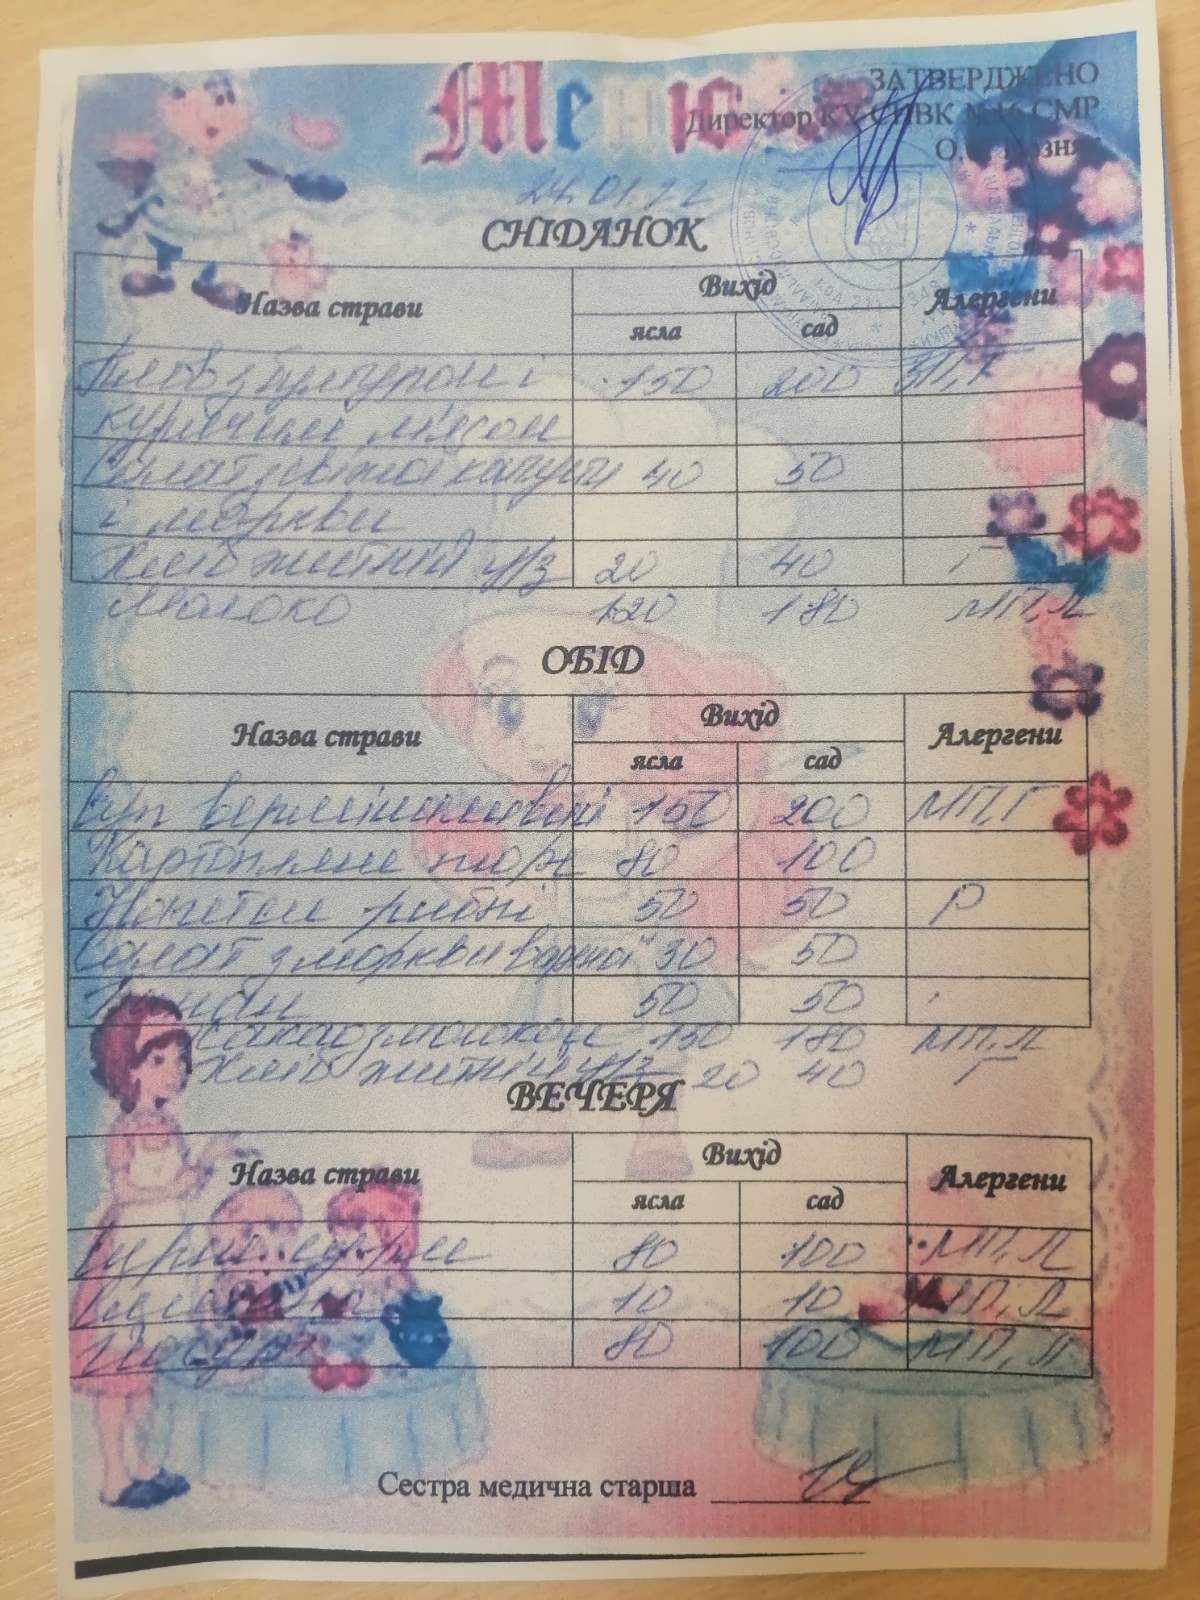 Меню
ЗАТВЕРДЖЕНО
Директор КУ СПВК №16 СМР
24.01.22
СНІДАНОК
Назва страви Вихід Алергени
ясла сад
Плов з булгуром і 150 200 ЗП,Г
курячим м'ясом
Салат з свіжої капусти 40 50
і моркви
Хліб житній ч/з 20 40 Г
Молоко 120 180 МП,Л
ОБІД
Назва страви Вихід Алергени
ясла сад
Суп вермішелевий 150 200 МП,Г
Картопляне пюре 80 100
Нагетси рибні 50 50 Р
Салат з моркви вареної 30 50
Банан 50 50
Какао з молоком 150 180 МП,Л
Хліб житній ч/з 20 40 Г
ВЕЧЕРЯ
Назва страви Вихід Алергени
ясла сад
80 100 МП,Л
10 10 МП,Л
Йогурт 80 100 МП,Л
Сестра медична старша